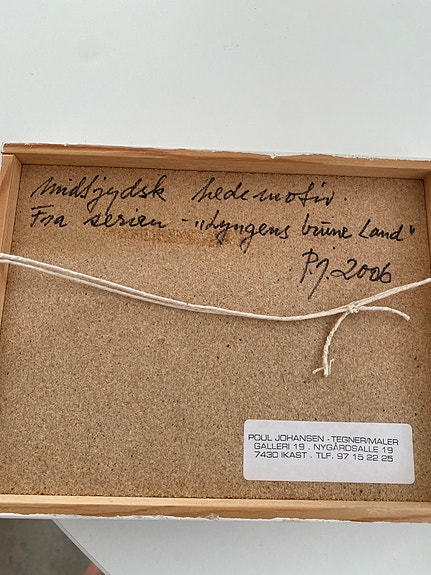 Midtjydsk hedemotiv.
Fra serien - "Lyngens brune Land"
P.J. 2006
POUL JOHANSEN - TEGNER/MALER
GALLERI 19 . NYGÅRDSALLE 19
7430 IKAST . TLF. 97 15 22 25